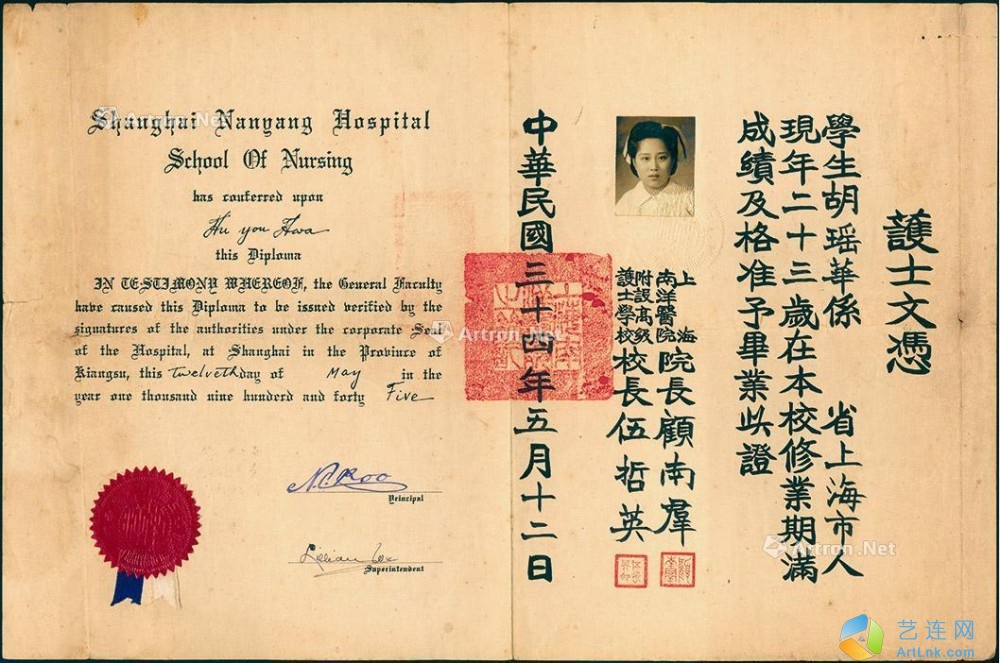 Shanghai Nanyang Hospital
School Of Nursing
has conferred upon
Hu you Hwa
this Diploma
IN TESTIMONY WHEREOF, the General Faculty
have caused this Diploma to be issued verified by the
signatures of the authorities under the corporate Seal
of the Hospital, at Shanghai in the Province of
Kiangsu, this twelveth day of May in the
year one thousand nine hundred and forty Five
N.C.Koo
Principal
Lillian Wu
Superintendent
護士文憑
學生胡瑶華係 省上海市人
現年二十三歲在本校修業期滿
成績及格准予畢業此證
上海
南洋醫院 院長顧南羣
附設高級
護士學校 校長伍哲英
中華民國三十四年五月十二日
Artron.Net
Artron.Net
Artron.Net
艺连网
ArtLnk.com